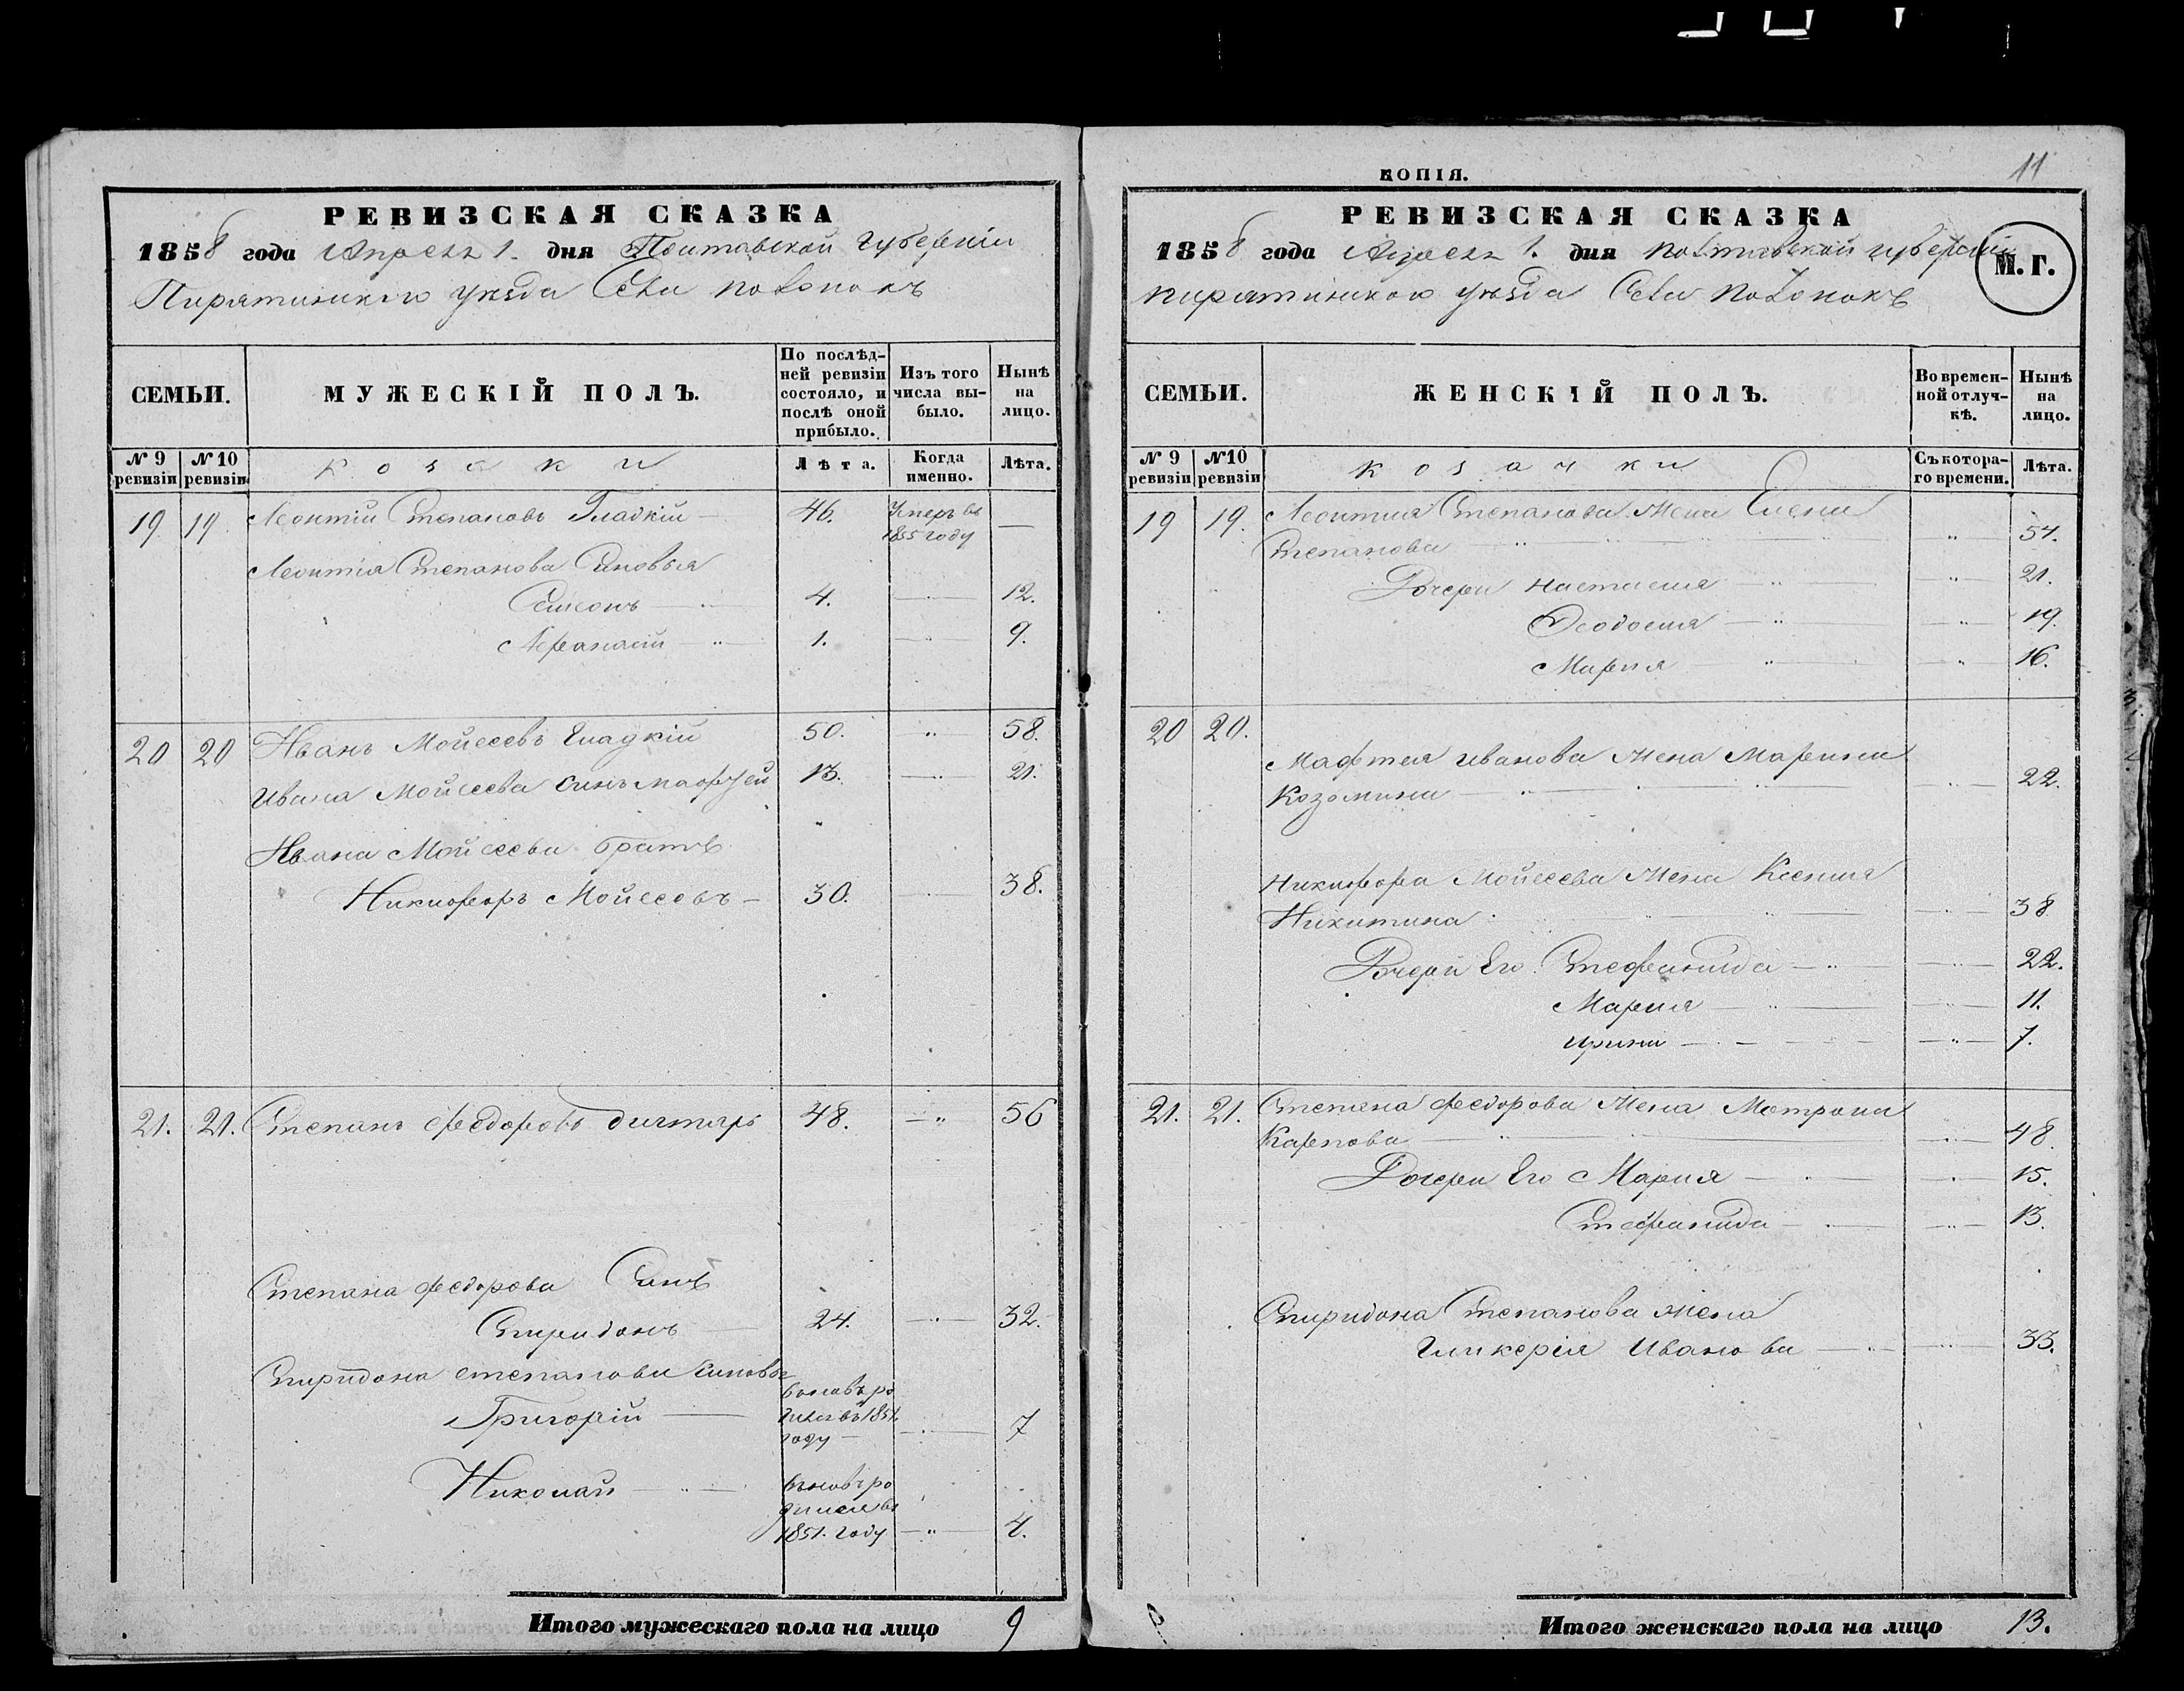 РЕВИЗСКАЯ СКАЗКА
1858 года Апреля 1. дня Полтавской Губерніи
Пирятинского уезда Села
СЕМЬИ.
МУЖЕСКІЙ ПОЛЪ.
По послѣд-
ней ревизіи
состояло, и
послѣ оной
прибыло.
Изъ того
числа вы-
было.
Нынѣ
на
лицо.
№ 9
ревизіи
№ 10
ревизіи
козаки
Лѣта.
Когда
именно.
Лѣта.
19 19 Леонтій Степановъ Гладкій 46. Умеръ въ
1855 году
Леонтія Степанова Сыновья
Самсонъ 4. 12.
Афанасій 1. 9.
20 20 Иванъ Мойсеевъ Гладкій 50. 58.
Ивана Мойсеева Сынъ 13. 21.
Ивана Мойсеева братъ
Никифоръ Мойсеевъ 30. 38.
21. 21. Степанъ Федоровъ 48. 56
Степана Федорова Сынъ
Спиридонъ 24. 32.
Спиридона Степанова Сыновья
Григорій родился въ 1851. году 7
Николай родился въ 1851. году 4.
Итого мужескаго пола на лицо 9
КОПІЯ.
11
РЕВИЗСКАЯ СКАЗКА
1858 года Апреля 1. дня Полтавской губерніи
М. Г.
Пирятинского уезда Села
СЕМЬИ.
ЖЕНСКІЙ ПОЛЪ.
Во времен-
ной отлуч-
кѣ.
Нынѣ
на
лицо.
№ 9
ревизіи
№10
ревизіи
козачки
Съ котора-
го времени.
Лѣта.
19 19. Леонтия Степанова Жена Елена
Степанова 54.
Дочери Настасия 21.
Феодосия 19
Мария 16.
20 20.
Иванова Жена Марина
Козомина 22.
Никифора Мойсеева Жена Ксения
Никитина 38
Дочери Его Стефанида 22.
Мария 11.
Ирина 7.
21. 21. Степана Федорова Жена Мотрона
Карпова 48
Дочери Его Мария 15.
Стефанида 13.
Спиридона Степанова Жена
Гликерія Иванова 33.
Итого женскаго пола на лицо 13.